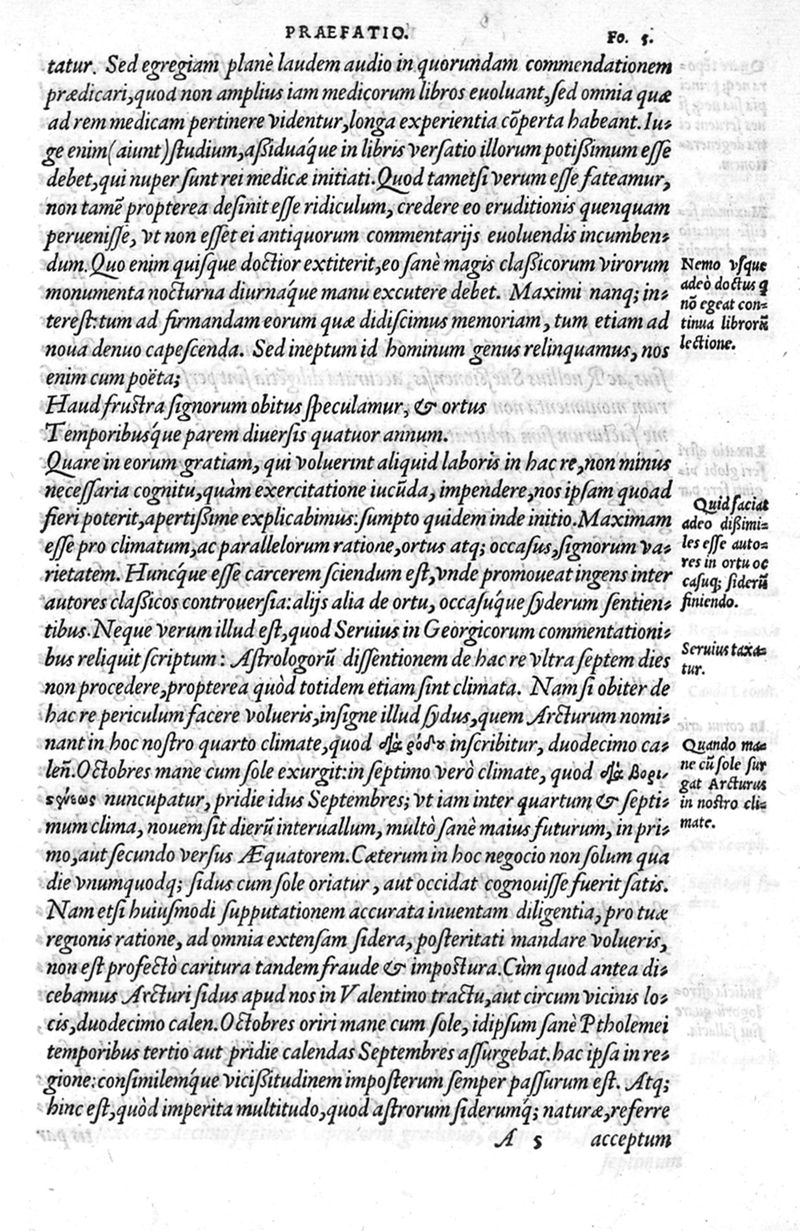 PRAEFATIO.
Fo. 5.
tatur. Sed egregiam planè laudem audio in quorundam commendationem
prædicari, quod non amplius iam medicorum libros euoluant, sed omnia quæ
ad rem medicam pertinere videntur, longa experientia cõperta habeant. Iu-
ge enim (aiunt) studium, aßiduaq́ue in libris versatio illorum potißimum esse
debet, qui nuper sunt rei medicæ initiati. Quod tametsi verum esse fateamur,
non tamẽ propterea desinit esse ridiculum, credere eo eruditionis quenquam
peruenisse, vt non esset ei antiquorum commentarijs euoluendis incumben-
dum. Quo enim quisque doctior extiterit, eo sanè magis claßicorum virorum
monumenta nocturna diurnaq́ue manu excutere debet. Maximi nanq; in-
terest: tum ad firmandam eorum quæ didiscimus memoriam, tum etiam ad
noua denuo capescenda. Sed ineptum id hominum genus relinquamus, nos
enim cum poëta;
Haud frustra signorum obitus speculamur, & ortus
Temporibusq́ue parem diuersis quatuor annum.
Quare in eorum gratiam, qui voluerint aliquid laboris in hac re, non minus
necessaria cognitu, quàm exercitatione iucũda, impendere, nos ipsam quoad
fieri poterit, apertißime explicabimus: sumpto quidem inde initio. Maximam
esse pro climatum, ac parallelorum ratione, ortus atq; occasus, signorum va-
rietatem. Huncq́ue esse carcerem sciendum est, vnde promoueat ingens inter
autores claßicos controuersia: alijs alia de ortu, occasuq́ue syderum sentien-
tibus. Neque verum illud est, quod Seruius in Georgicorum commentationi-
bus reliquit scriptum: Astrologorũ dissentionem de hac re vltra septem dies
non procedere, propterea quòd totidem etiam sint climata. Nam si obiter de
hac re periculum facere volueris, insigne illud sydus, quem Arcturum nomi-
nant in hoc nostro quarto climate, quod διὰ ρόδου inscribitur, duodecimo ca-
leñ. Octobres mane cum sole exurgit: in septimo verò climate, quod διὰ βορι-
σθένεως nuncupatur, pridie idus Septembres; vt iam inter quartum & septi-
mum clima, nouem sit dierũ interuallum, multò sanè maius futurum, in pri-
mo, aut secundo versus Æquatorem. Cæterum in hoc negocio non solum qua
die vnumquodq; sidus cum sole oriatur, aut occidat cognouisse fuerit satis.
Nam etsi huiusmodi supputationem accurata inuentam diligentia, pro tuæ
regionis ratione, ad omnia extensam sidera, posteritati mandare volueris,
non est profectò caritura tandem fraude & impostura. Cùm quod antea di-
cebamus Arcturi sidus apud nos in Valentino tractu, aut circum vicinis lo-
cis, duodecimo calen. Octobres oriri mane cum sole, idipsum sanè Ptholemei
temporibus tertio aut pridie calendas Septembres assurgebat. hac ipsa in re-
gione: consimilemq́ue vicißitudinem imposterum semper passurum est. Atq;
hinc est, quòd imperita multitudo, quod astrorum siderumq́; naturæ, referre
A 5 acceptum
Nemo vsque
adeò doctus q̃
nõ egeat con-
tinua librorũ
lectione.
Quid faciat
adeo dißimi-
les esse auto-
res in ortu oc
casuq; siderũ
finiendo.
Seruius taxa-
tur.
Quando ma-
ne cũ sole sur
gat Arcturus
in nostro cli-
mate.